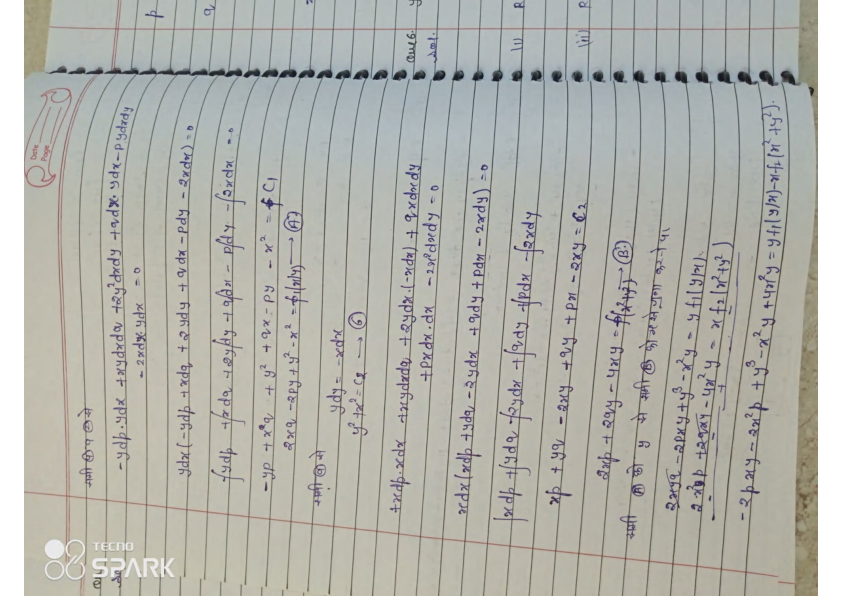 Date
Page
समी
-ydp.ydx + xydxdq + 2y²dxdy + qdx.ydx - pydxdy
- 2xdx.ydx = 0
ydx(-ydp + xdq + 2ydy + qdx - pdy - 2xdx) = 0
∫ydp + ∫xdq + ∫2ydy + ∫qdx - ∫pdy - ∫2xdx = 0
-yp + xq + y² + qx - py - x² = C1
2xq - 2py + y² - x² = f1(x/y) → (A)
समी
ydy = -xdx
y² + x² = C2 → (6)
+xdp.xdx + xydxdq + 2ydx.(-xdx) + qxdxdy
+ pxdx.dx - 2x²dxdy = 0
xdx(xdp + ydq - 2ydx + qdy + pdx - 2xdy) = 0
∫xdp + ∫ydq - ∫2ydx + ∫qdy + ∫pdx - ∫2xdy
xp + yq - 2xy + qy + px - 2xy = C2
2xp + 2qy - 4xy = f2(x²+y²) → (B)
समी (A) को y से समी (B) को x से गुणा करने पर
2xyq - 2pxy + y³ - x²y = y f1(y/x)
2x²p + 2qxy - 4x²y = x f2(x²+y²)
- - + -
-2pxy - 2x²p + y³ - x²y + 4x²y = y f1(y/x) - x f2(x²+y²).
p
q
(i)
(ii)
TECNO
SPARK